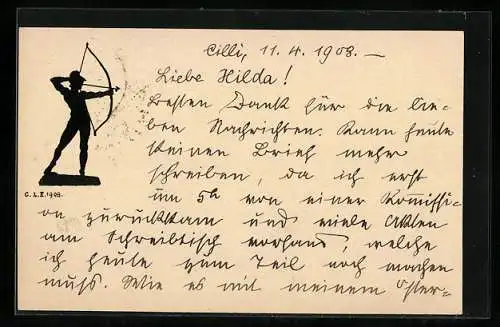 Cilli, 11. 4. 1908. —
Liebe Hilda!
Besten Dank für die lie-
ben Nachrichten. Kann heute
keinen Brief mehr
schreiben, da ich erst
um 5h von einer Kommissi-
C. L. I. 1908.
on zurückkam und viele Akten
am Schreibtisch vorfand, welche
ich heute zum Teil noch machen
muss. Wie es mit meinem Oster-